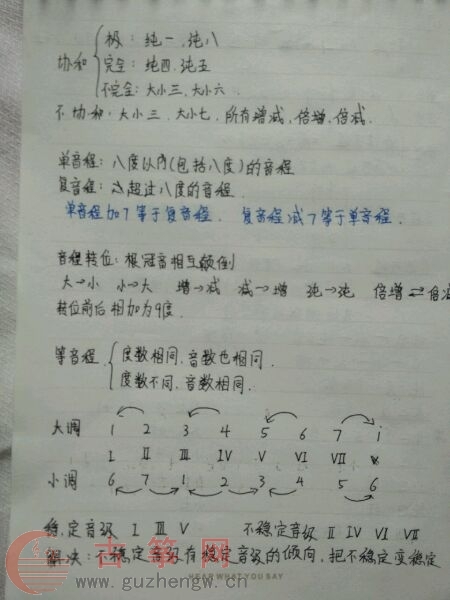 极：纯一，纯八
协和 完全：纯四，纯五
不完全：大小三、大小六．
不协和：大小三、大小七、所有增减、倍增、倍减．
单音程：八度以内(包括八度)的音程
复音程：超过八度的音程．
单音程加7等于复音程． 复音程减7等于单音程．
音程转位：根冠音相互颠倒
大→小 小→大 增→减 减→增 纯→纯 倍增⇌倍减
转位前后相加为9度．
等音程 度数相同，音数也相同．
度数不同，音数相同．
大调 1 2 3 4 5 6 7 i
I II III IV V VI VII
小调 6 7 1 2 3 4 5 6
稳定音级 I III V 不稳定音级 II IV VI VII
解决：不稳定音级有稳定音级的倾向，把不稳定变稳定
古筝网
www.guzhengw.cn
HEAR WHAT YOU SAY